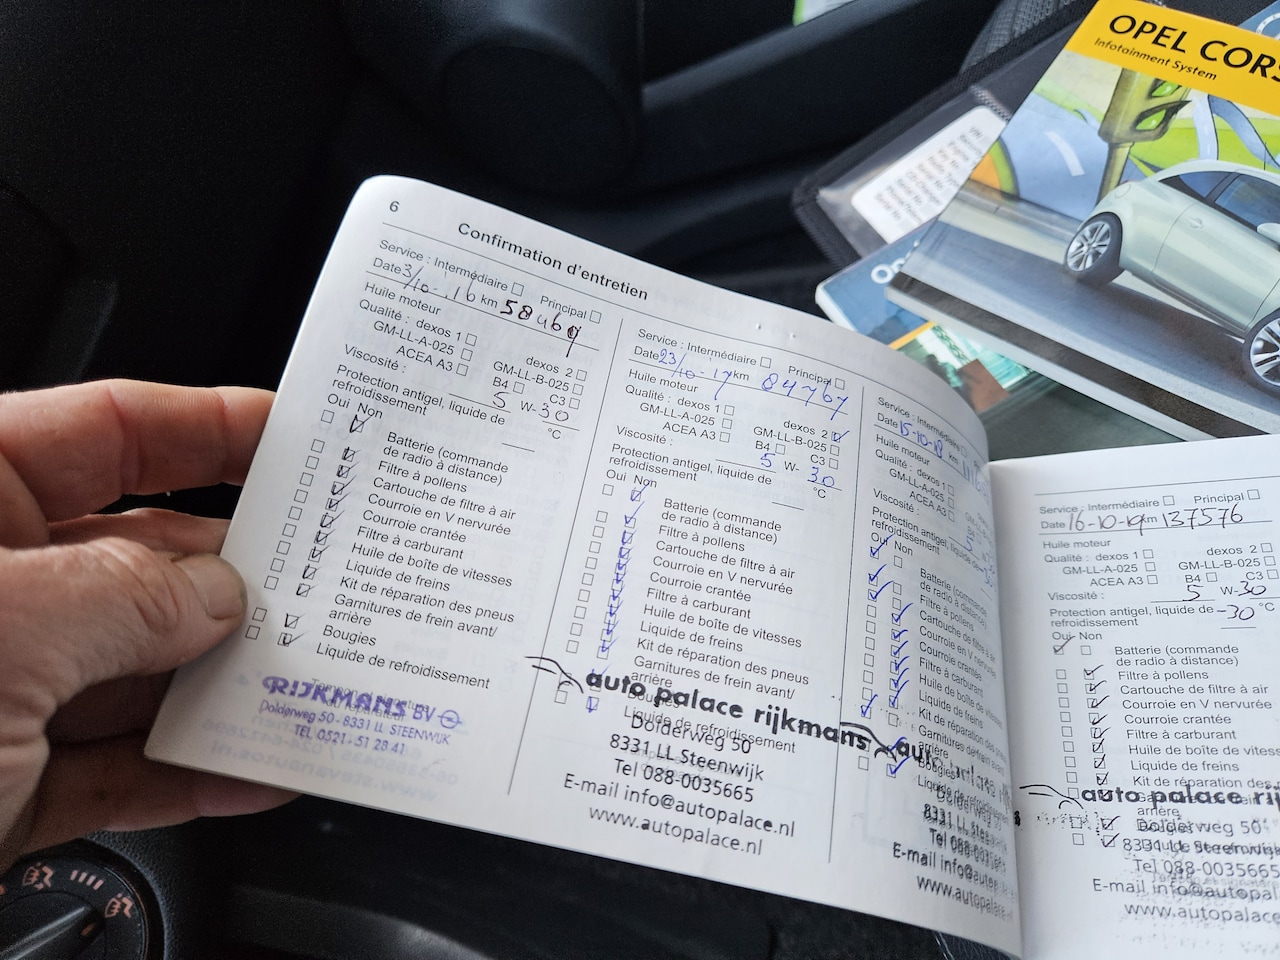 OPEL CORS
Infotainment System
Op
6
Confirmation d'entretien
Service : Intermédiaire Principal
Date 3/10-'16 km 58469
Huile moteur
Qualité : dexos 1 dexos 2
GM-LL-A-025 GM-LL-B-025
ACEA A3 B4 C3
Viscosité : 5 W-30
Protection antigel, liquide de
refroidissement °C
Oui Non
Batterie (commande
de radio à distance)
Filtre à pollens
Cartouche de filtre à air
Courroie en V nervurée
Courroie crantée
Filtre à carburant
Huile de boîte de vitesses
Liquide de freins
Kit de réparation des pneus
Garnitures de frein avant/
arrière
Bougies
Liquide de refroidissement
RIJKMANS BV
Dolderweg 50 - 8331 LL STEENWIJK
TEL. 0521 - 51 28 41
Service : Intermédiaire Principal
Date 23/10-17 km 84767
Huile moteur
Qualité : dexos 1 dexos 2
GM-LL-A-025 GM-LL-B-025
ACEA A3 B4 C3
Viscosité : 5 W-30
Protection antigel, liquide de
refroidissement °C
Oui Non
Batterie (commande
de radio à distance)
Filtre à pollens
Cartouche de filtre à air
Courroie en V nervurée
Courroie crantée
Filtre à carburant
Huile de boîte de vitesses
Liquide de freins
Kit de réparation des pneus
Garnitures de frein avant/
arrière
Bougies
Liquide de refroidissement
auto palace rijkmans
Dolderweg 50
8331 LL Steenwijk
Tel 088-0035665
E-mail info@autopalace.nl
www.autopalace.nl
Service : Intermédiaire
Date 15-10-18 km
Huile moteur
Qualité : dexos 1
GM-LL-A-025
ACEA A3
Viscosité : 5
Protection antigel, liquide de
refroidissement
Oui Non
Batterie (commande
de radio à distance)
Filtre à pollens
Cartouche de filtre à air
Courroie en V nervurée
Courroie crantée
Filtre à carburant
Huile de boîte de vitesses
Liquide de freins
Kit de réparation des pneus
Garnitures de frein avant/
arrière
Bougies
Liquide de refroidissement
Dolderweg
8331 LL Stee
Tel 088-0035
E-mail info@autopalace.nl
www.autopalace.nl
Service : Intermédiaire Principal
Date 16-10-19 km 137576
Huile moteur
Qualité : dexos 1 dexos 2
GM-LL-A-025 GM-LL-B-025
ACEA A3 B4 C3
Viscosité : 5 W-30
Protection antigel, liquide de -30 °C
refroidissement
Oui Non
Batterie (commande
de radio à distance)
Filtre à pollens
Cartouche de filtre à air
Courroie en V nervurée
Courroie crantée
Filtre à carburant
Huile de boîte de vitesses
Liquide de freins
Kit de réparation des
arrière
auto palace rij
Dolderweg 50
8331 LL Steenwijk
Tel 088-0035665
E-mail info@autopala
www.autopalace